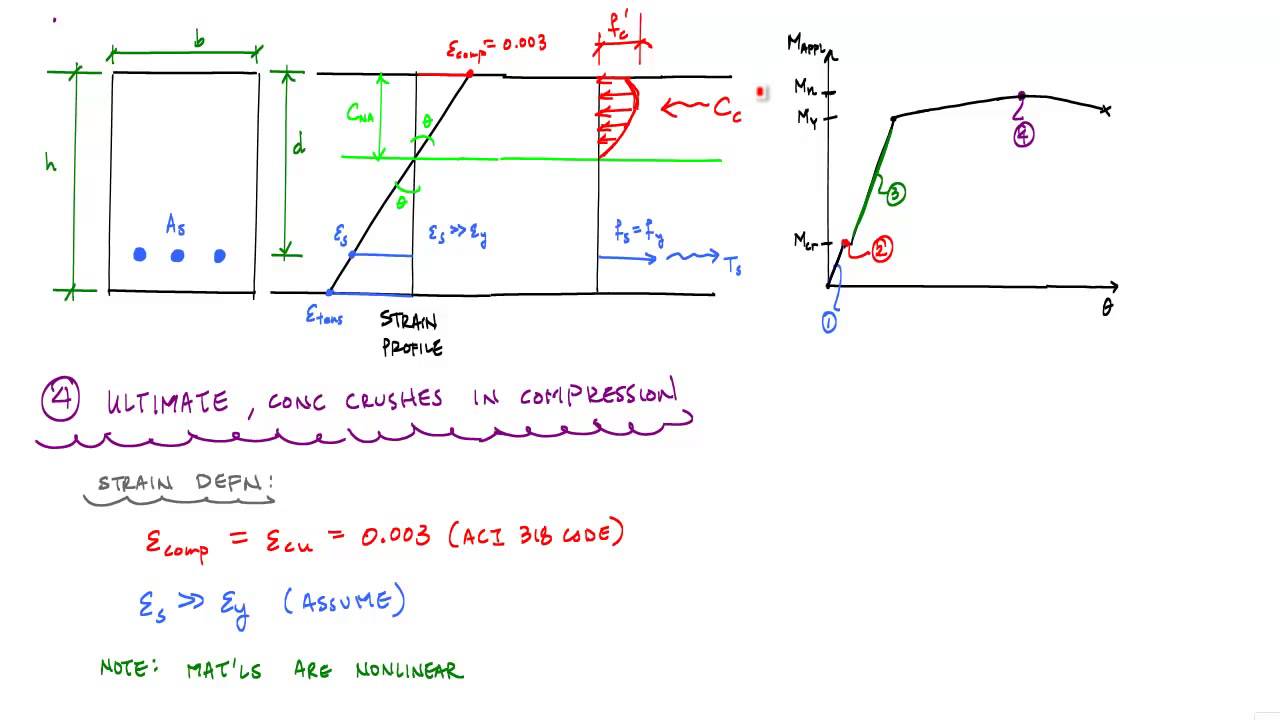 b
h
d
As
εcomp = 0.003
CNA
θ
θ
εs
εs >> εy
εtens
STRAIN
PROFILE
f'c
Cc
fs = fy
Ts
MAPPL
Mn
My
Mcr
θ
①
②
③
④
④ ULTIMATE, CONC CRUSHES IN COMPRESSION
STRAIN DEFN:
εcomp = εcu = 0.003 (ACI 318 CODE)
εs >> εy (ASSUME)
NOTE: MAT'LS ARE NONLINEAR